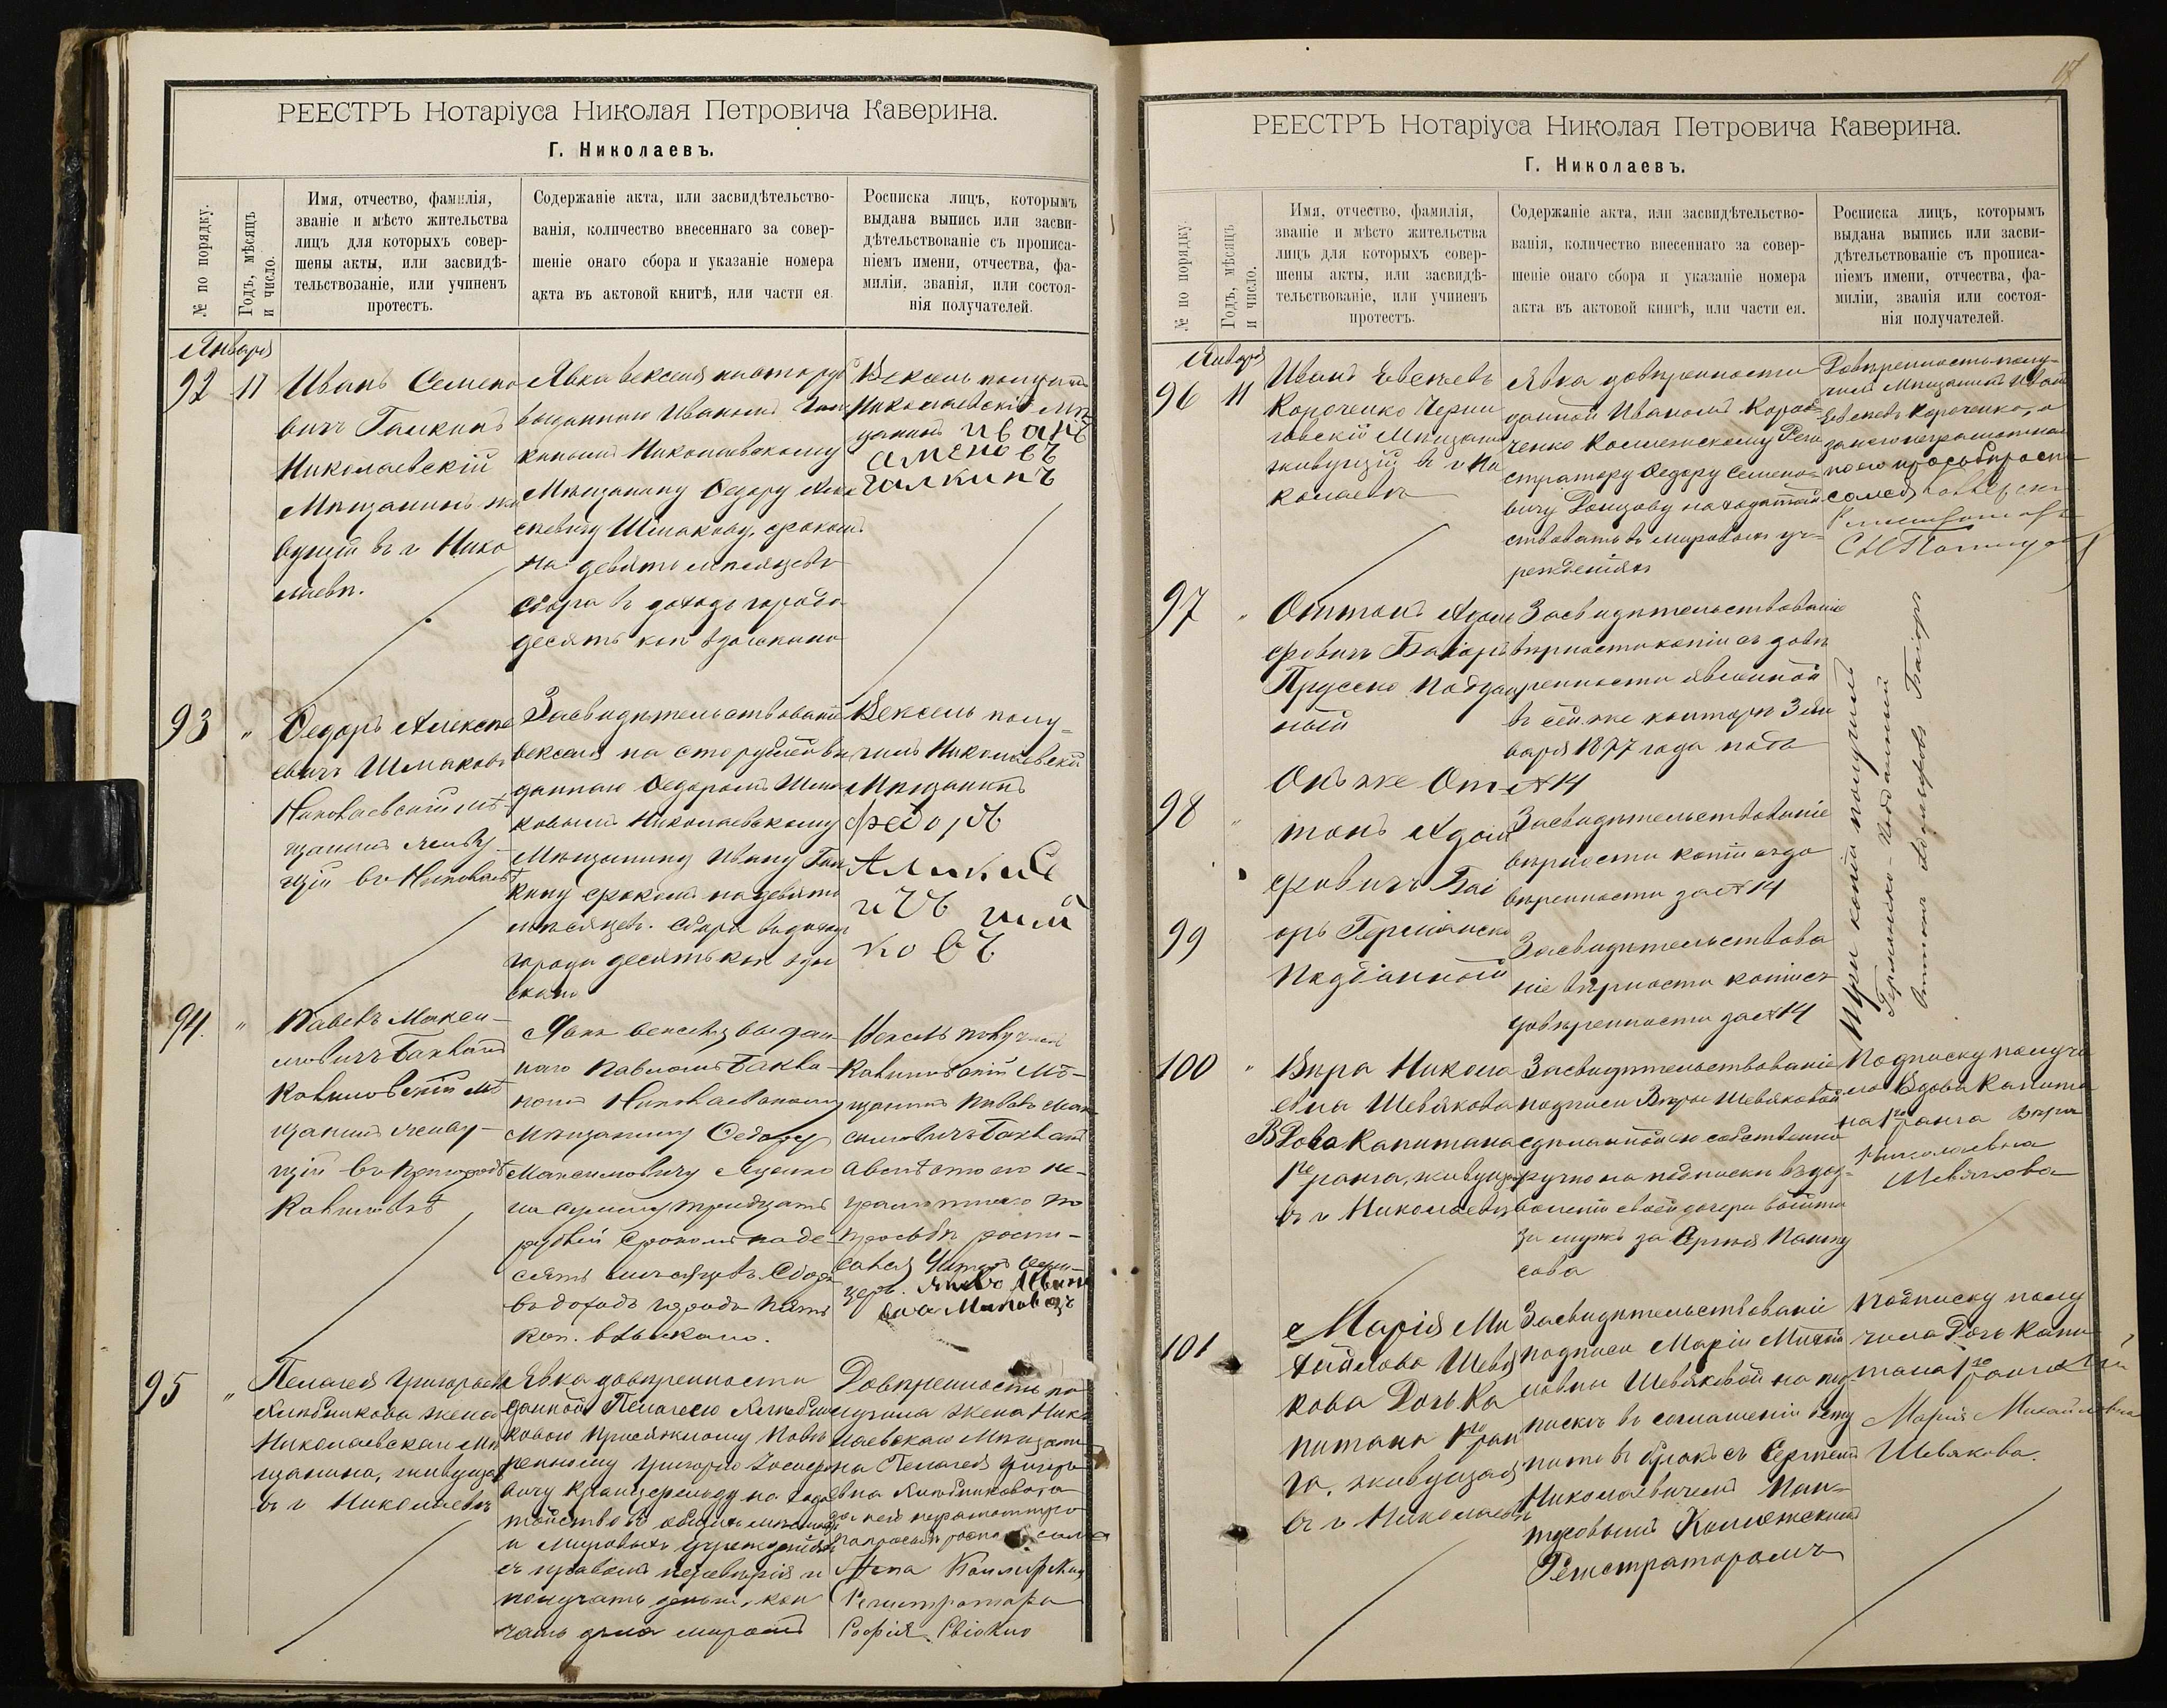 РЕЕСТРЪ Нотаріуса Николая Петровича Каверина.
Г. Николаевъ.
№ по порядку.
Годъ, мѣсяцъ
и число.
Имя, отчество, фамилія,
званіе и мѣсто жительства
лицъ для которыхъ совер-
шены акты, или засвидѣ-
тельствованіе, или учиненъ
протестъ.
Содержаніе акта, или засвидѣтельство-
ванія, количество внесеннаго за совер-
шеніе онаго сбора и указаніе номера
акта въ актовой книгѣ, или части ея.
Росписка лицъ, которымъ
выдана выпись или засви-
дѣтельствованіе съ прописа-
ніемъ имени, отчества, фа-
миліи, званія, или состоя-
нія получателей.
Января
92
11
Иванъ Семено
вичъ Галкинъ
Николаевскій
Мѣщанинъ жи
вущій въ г Нико
лаевѣ.
Явка векселя на сто руб
выданнаго Иваномъ Гал
кинымъ Николаевскому
Мѣщанину Федору Алек
сѣевичу Шмакову, срокомъ
на девять мѣсяцевъ
сбора въ доходъ города
десять коп взыскано
Вексель получилъ
Николаевскій Мѣ
щанинъ иванъ
семеновъ
галкинъ
93
"
Федоръ Алексѣ
евичъ Шмаковъ
Николаевскій мѣ
щанинъ живу-
щій въ Николаевѣ
Засвидѣтельствованіе
векселя на сто рублей вы
даннаго Федоромъ Шма
ковымъ Николаевскому
Мѣщанину Ивану Гал
кину срокомъ на девять
мѣсяцевъ. Сбора въ доходъ
города десять коп взы
скано
Вексель полу-
чилъ Николаевскій
Мѣщанинъ
федоръ
94.
"
Павелъ Макси-
мовичъ Бакланъ
мѣ
щанинъ живу-
щій въ
Явка векселя выдан-
наго Павломъ Бакла-
номъ Николаевскому
Мѣщанину Федору
Максимовичу Яценко
на сумму тридцать
рублей срокомъ на де-
сять мѣсяцевъ. Сбора
въ доходъ города пять
коп. взыскано.
Вексель получилъ
мѣ-
щанинъ Павелъ Мак
симовичъ Бакланъ
а вмѣсто его не-
грамотнаго по
просьбѣ роспи-
95
"
Пелагея Григорьевна
Хлѣбникова жена
Николаевскаго Мѣ
щанина, живущая
въ г Николаевѣ
Явка довѣренности
данной Пелагеею Хлѣбни
ковою Присяжному Повѣ
ренному Григорію
вичу на хода
тайство въ общихъ
и Мировыхъ учрежденіяхъ
съ правомъ передовѣрія и
получать деньги, кон
чать дѣла миромъ
Довѣренность по
лучила жена Нико
лаевскаго Мѣщани
на Пелагея Григорь
евна Хлѣбникова а
за нея неграмотную
по просьбѣ росписалась
Жена
Регистратора
Софія
17
РЕЕСТРЪ Нотаріуса Николая Петровича Каверина.
Г. Николаевъ.
№ по порядку.
Годъ, мѣсяцъ
и число.
Имя, отчество, фамилія,
званіе и мѣсто жительства
лицъ для которыхъ совер-
шены акты, или засвидѣ-
тельствованіе, или учиненъ
протестъ.
Содержаніе акта, или засвидѣтельство-
ванія, количество внесеннаго за совер-
шеніе онаго сбора и указаніе номера
акта въ актовой книгѣ, или части ея.
Росписка лицъ, которымъ
выдана выпись или засви-
дѣтельствованіе съ прописа-
ніемъ имени, отчества, фа-
миліи, званія или состоя-
нія получателей.
Января
96
11
Иванъ Евсѣевъ
Короченко Черни
говскій Мѣщанинъ
живущій въ г Ни
колаевѣ
Явка довѣренности
данной Иваномъ Коро
ченко Коллежскому Реги
стратору Федору Семено-
вичу Донцову на ходатай
ствовать въ мировыхъ уч-
режденіяхъ
Довѣренность полу-
чилъ Мѣщанинъ Иванъ
Евсеевъ Короченко, а
за него неграмотнаго
по его просьбѣ роспи
сался
97
"
Оттонъ Адоль
фовичъ Баіоръ
Прусско Поддан
ный
Засвидѣтельствованіе
вѣрности копіи съ довѣ
ренности явленной
въ сей же конторѣ 3 Ян
варя 1877 года подъ
№ 14
98
"
Онъ же От-
тонъ Адоль
фовичъ Баі
оръ Германско
Подданный
Засвидѣтельствованіе
вѣрности копіи съ до
вѣренности за № 14
99
Засвидѣтельствова
ніе вѣрности копіи съ
довѣренности за № 14
Три копіи получилъ
Германско-Подданный
Оттонъ Адольфовъ Баіоръ
100
"
Вѣра Никола
евна Шевякова
Вдова Капитана
1го ранга, живущая
въ г Николаевѣ
Засвидѣтельствованіе
подписи Вѣры Шевяковой
сдѣланной ею собственно
ручно на подписки въ доз-
воленіи своей дочери выйти
за мужъ за Сергѣя Панту
сова
Подписку получи
ла Вдова Капита
на 1го ранга Вѣра
Николаевна
Шевякова
101
Марія Ми
хайлова Шевя
кова Дочь Ка
питана 1го ран
га, живущая
въ г Николаевѣ
Засвидѣтельствованіе
подписи Маріи Михай
ловны Шевяковой на под
пискѣ въ соглашеніи всту
пить въ бракъ съ Сергѣемъ
Николаевичемъ Пан-
тусовымъ Коллежскимъ
Регистраторомъ
Подписку полу
чила Дочь Капи
тана 1го ранга
Марія Михайловна
Шевякова.